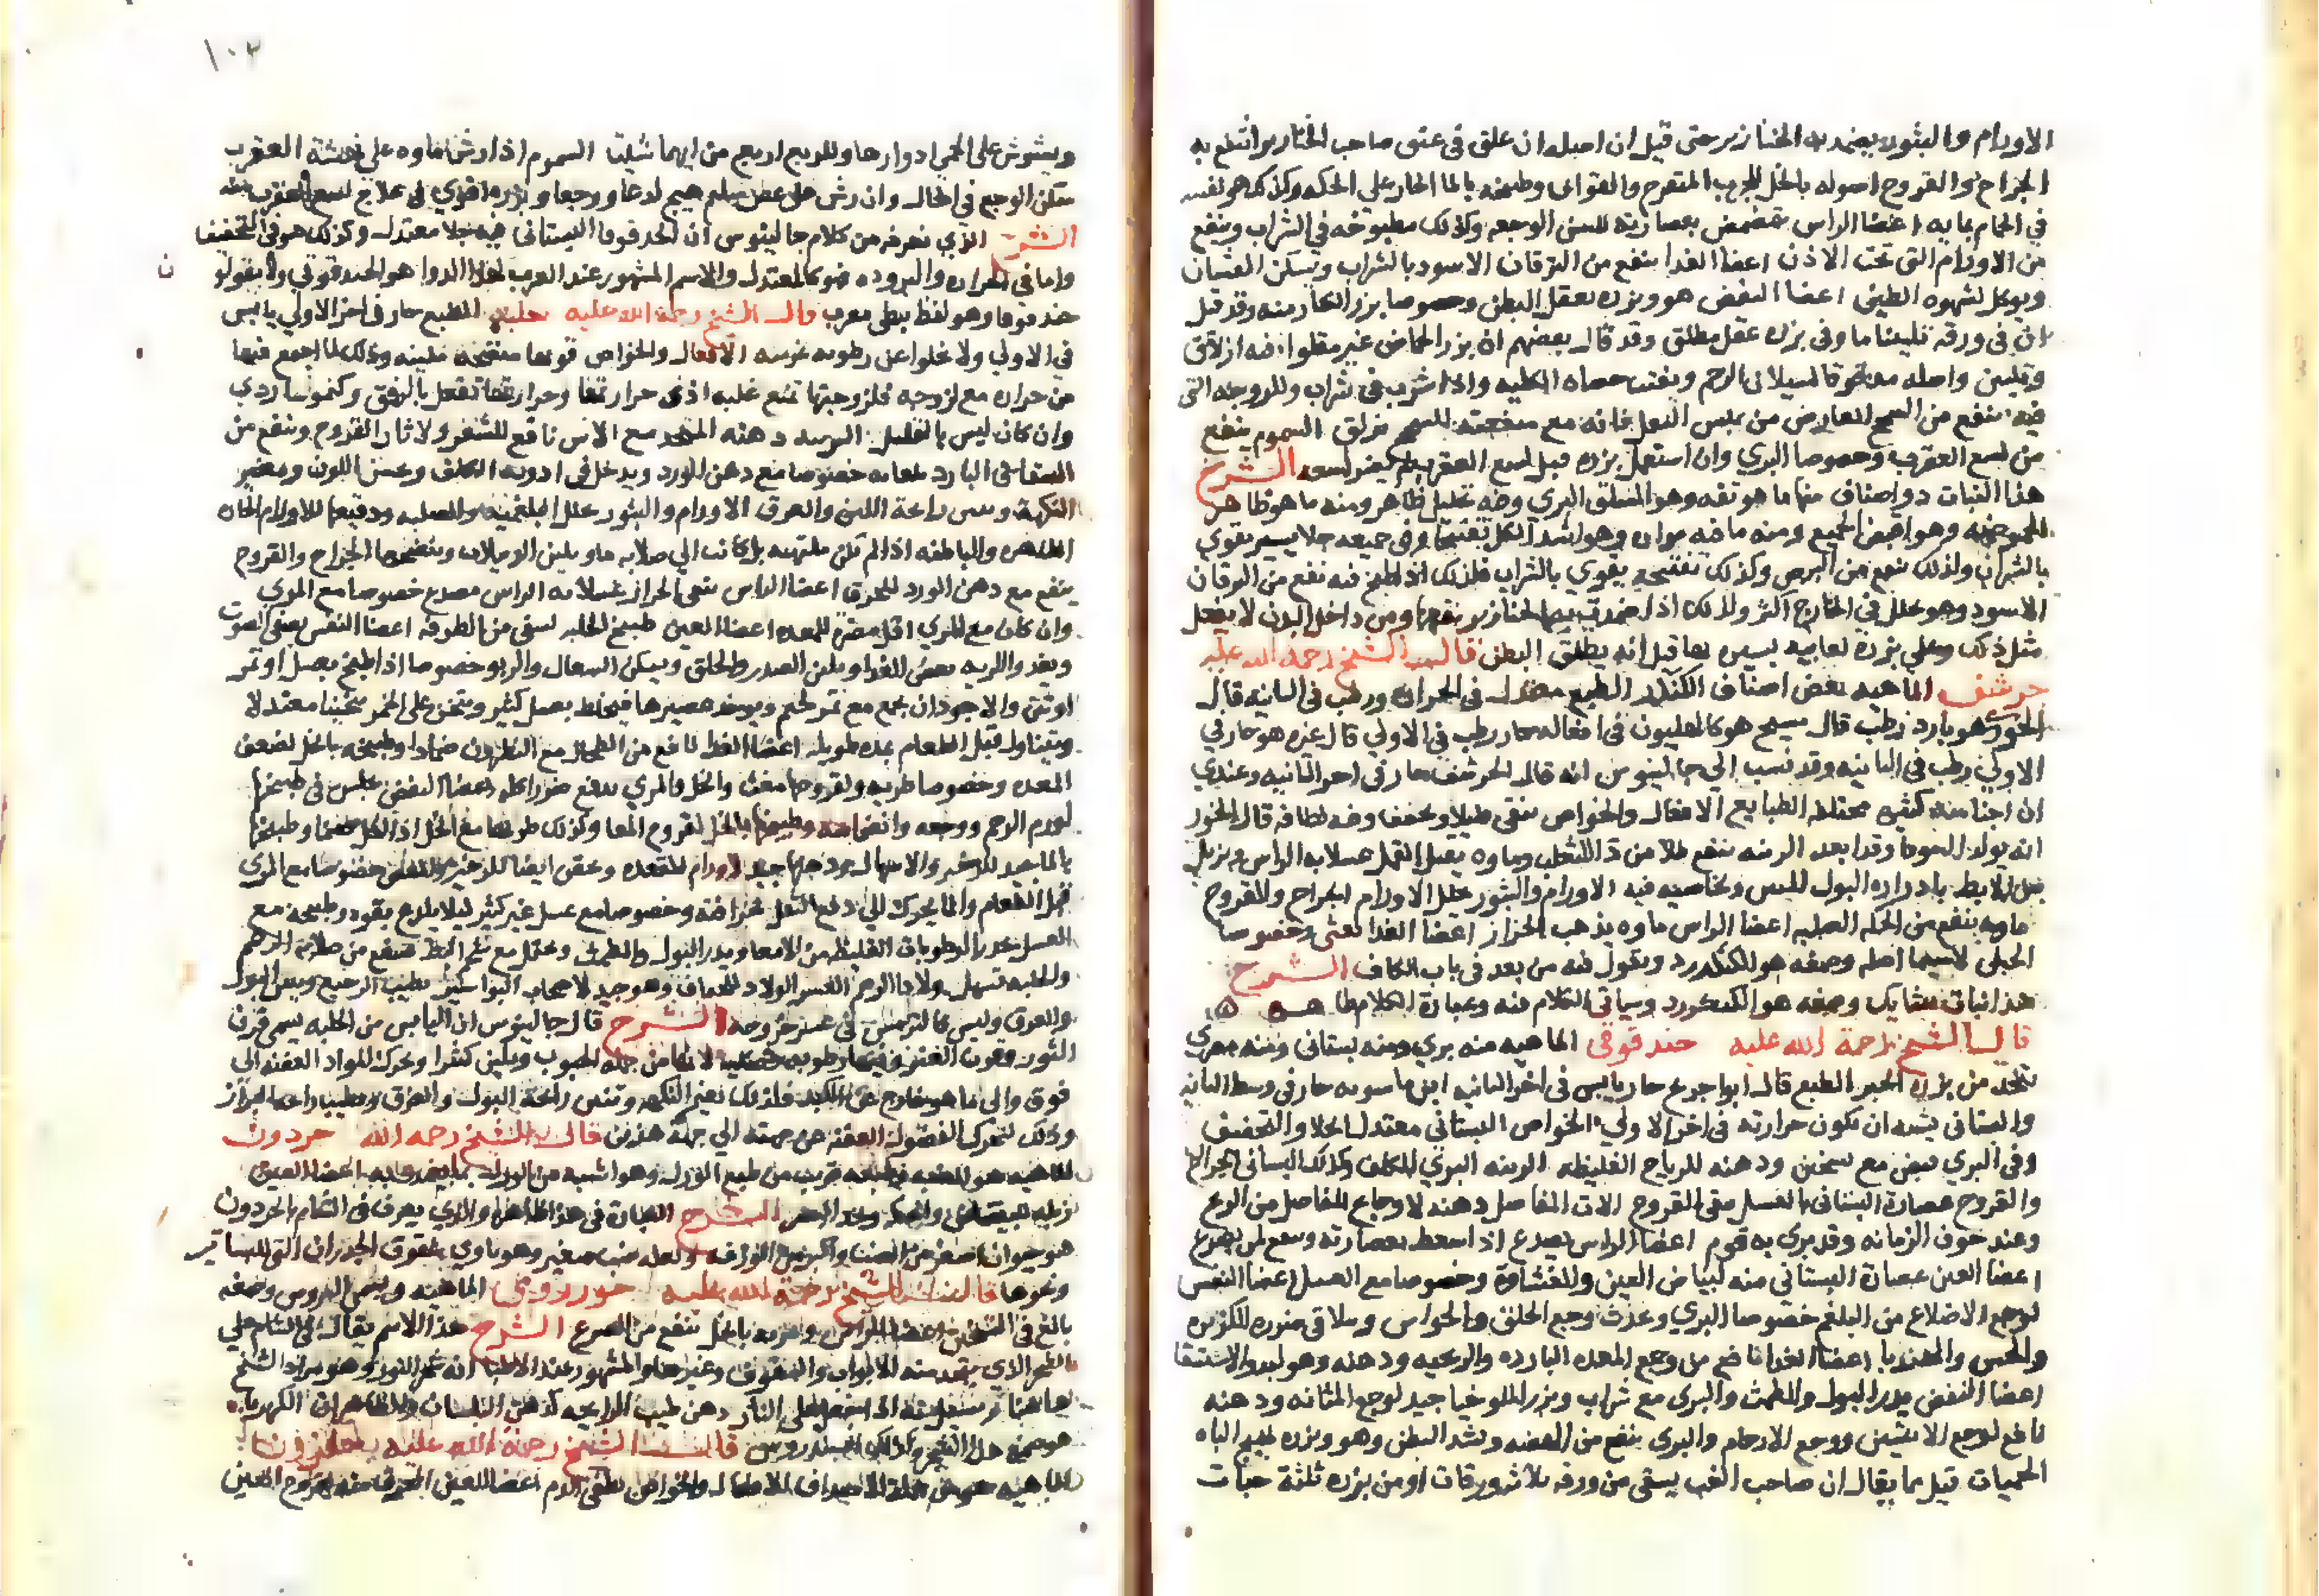 الاورام والبثور يضمد به الخنازير حتى قيل ان اصله ان علق في عنق صاحب الخنازير انتفع به
الجراح والقروح اصوله بالخل للجرب المتقرح والقوابى وطبيخه بالما الحار على الحكه وكذلك هو نفسه
في الحمام بمايه اعضا الراس يتمضمض بعصارته للسن الوجعه وكذلك مطبوخه في الشراب وينفع
من الاورام التى تحت الاذن اعضا الغدا ينفع من اليرقان الاسود بالشراب ويسكن الغثيان
ويوكل لشهوه الطين اعضا النفض هو وبزره يعقل البطن وخصوصا بزر الكبار منه وقد قيل
ان في ورقه تليينا ما وفى بزره عقل مطلق وقد قال بعضهم ان بزر الحماض غير مقلو فيه ازلاق
وتليين واصله مدقوقا لسيلان الرحم ويفتت حصاه الكليه واذا شرب في شراب
فيه ينفع من السحج العارض من يبس الثفل فانه مع منفعته للسحج مزلق السموم ينفع
من لسع العقرب وخصوصا البري وان استعمل بزره قبل لسع العقرب لم يضر لسعه الشرح
هذا النبات ذو اصناف منها ما هو تفه وهو السلق البري وفيه تحليل ظاهر ومنه ما هو ظاهر
الحموضه وهو اقبض الجميع ومنه ما فيه مراره وهو اشد الكل تفتيحا وفى جميعه جلا يسير يقوي
بالشراب ولذلك ينفع من البرص وكذلك تفتيحه يقوي بالشراب فلذلك اذا طبخ فيه نفع من اليرقان
الاسود وهو محلل في الخارج اكثر ولذلك اذا ضمدت به الخنازير نفعها ومن داخل البدن لا يفعل
مثل ذلك وعلى بزره لعابيه يسيره بها قيل انه يطلق البطن قال الشيخ رحمة الله عليه
حرشف الماهيه بعض اصناف الكنكر الطبع معتدل في الحراره ورطب في الثانيه قال
الخوزي هو بارد رطب قال مسيح هو كالهليون في افعاله حار رطب في الاولي قال غيره هو حار في
الاولي رطب في الثانيه وقد نسب الي جالينوس انه قال الحرشف حار في اخر الثانيه وعندي
ان اجناسه كثيره مختلفه الطبايع الافعال والخواص ينقى قليلا ويجفف وفيه لطافه قال الخوز
انه يولد السودا وقد ابعد الزينه ينفع طلا من دا الثعلب وماوه يقتل القمل غسلا به الراس ويزيل
نتن الابط بادراره البول المنتن وبخاصيه فيه الاورام والبثور يحلل الاورام الجراح والقروح
ماوه ينفع من الحكه الصلبه اعضا الراس ماوه يذهب الحزاز اعضا الغدا يغثى وخصوصا
الجبلى لاسيما اصله وصمغه هو الكنكرزد ونقول فيه من بعد في باب الكاف الشرح
هذا نبات شايك وصمغه هو الكنكرزد وسياتى الكلام فيه وعبارة الكلام ظاهره
قال الشيخ رحمة الله عليه حندقوقى الماهيه منه بري ومنه بستانى ومنه مصري
يتخذ من بزره الخبز الطبع قال ابن جريج حار يابس في اخر الثانيه ابن ماسويه حار في وسط الثانيه
والبستانى يشبه ان تكون حرارته فى اخر الاولي الخواص البستانى معتدل الجلا والتجفيف
وفى البري قبض مع تسخين ودهنه للرياح الغليظه الزينه البري للكلف وكذلك البستانى الجراح
والقروح عصارة البستانى بالعسل تنقى القروح الات المفاصل دهنه لاوجاع المفاصل من الريح
وعند خوف الزمانه وقد بري به قوم اعضا الراس يصدع اذا سعط بعصارته وينفع لمن يصرع
اعضا العين عصارة البستانى منه لبياض العين وللغشاوة وخصوصا مع العسل اعضا النفس
لوجع الاضلاع من البلغم خصوصا البري ويحدث وجع الحلق والخوانيق ويتلافى ضرره الكزبره
والخس والهندبا اعضا الغدا نافع من وجع المعده البارده والريحيه ودهنه وهو لبدو الاستسقا
اعضا النفض يدر البول والطمث والبري مع شراب وبزر الملوخيا جيد لوجع المثانه ودهنه
نافع لوجع الانثيين ووجع الارحام والبري ينفع من الهيضه ويشد البطن وهو وبزره يهيج الباه
الحميات قيل مما يقال ان صاحب الغب يسقى من ورقه ثلاث ورقات او من بزره ثلثة حبات
١٠٢
ويشوش على الحمى ادوارها وللربع اربع من ايهما شيت السموم اذا رش ماوه على نهشة العقرب
سكن الوجع في الحال وان رش على عضو سليم هيج لدغا ووجعا وبزره اقوي في علاج لسع العقرب منه
الشرح الذي نعرفه من كلام جالينوس ان الحندقوقا البستانى فيه جلا معتدل وكذلك هو في التجفيف
واما في الحراره والبروده فهو كالمعتدل والاسم المشهور عند العرب لهذا الدوا هو الحندقوقي ولا يقولو
ن
حندقوقا وهو لفظ نبطى معرب قال الشيخ رحمة الله عليه حلبه الطبع حار في اخر الاولي يابس
في الاولي ولا يخلوا عن رطوبه غريبه الافعال والخواص قوتها منضجه ملينه وذلك لما اجمع فيها
من حراره مع لزوجه فلزوجتها تمنع غلبه اذى حرارتها وحرارتها تفعل بالرفق وكيموسها ردي
وان كان ليس بالقليل الزينه دهنه المتخذ مع الاس نافع للشعر ولاثار القروح وينفع من
الشقاق البارد لعابه خصوصا مع دهن الورد ويدخل في ادوية الكلف ويحسن اللون ويغير
النكهة وينتن رايحة اللبن والعرق الاورام والبثور يحلل البلغميه والصلبه ودقيقها للاورام الحاره
الظاهره والباطنه اذا لم تكن ملتهبه بل كانت الي صلابه ما ويلين الدبيلات وينضجها الجراح والقروح
ينفع مع دهن الورد للحرق اعضا الراس ينقى الحزاز غسلا به الراس مصدع خصوصا مع المري
وان كان مع المري اقل مضرة للمعده اعضا العين طبيخ الحلبه يشفى من الطرفه اعضا النفس يصفى الصوت
ويغذو الريه بعض الغدا ويلين الصدر والحلق ويسكن السعال والربو خصوصا اذا طبخ بعسل او تمر
او تين والاجود ان يجمع مع تمر لحيم ويوخذ عصيرها فيخلط بعسل كثير ويثخن على الجمر تثخينا معتدلا
ويتناول قبل الطعام بمده طويله اعضا الغدا نافع من الطحال مع النطرون ضمادا وطبيخه بالخل لضعف
المعده وخصوصا طريه ولقروحها مغث والخل والمري يدفع ضرر اكله اعضا النفض يجلس في طبيخها
لورم الرحم ووجعه وانضمامه وطبيخها بالخل لقروح المعا وكذلك طريها مع الخل اذا اكل وطبيخها
بالما جيد للزحير والاسهال ودهنها جيد لاورام المقعده ويحقن ايضا للزحير والمغص خصوصا مع المري
قبل الطعام وانما يحرك الي دفع الثفل بحرافته وخصوصا مع عسل غير كثير ليلا يلذع بقوه وطبيخه مع
العسل يحدر الرطوبات الغليظه من الامعا ويدر البول والطمث ويحتمل مع شحم البط فينفع من صلابة الرحم
والحلبه تسهل ولادة الرحم العسر الولاد للجفاف وهو جيد لاصحاب البواسير يطيب الرجيع وينتن البول
والعرق وليس كالترمس في عسر خروجه الشرح قال جالينوس ان اليابس من الحلبه يسمى قرن
الثور وقرن العنز وفيها رطوبه فضليه لانها من جمله الحبوب وتلين كثيرا وتحرك المواد العفنه الي
فوق والى ما هو خارج عن الكبد فلذلك تغير النكهه وتنتن رايحة البول والعرق وتطيب رايحة البراز
وذلك لتحرك الفضول العفنه عن جهته الي جهة هذين قال الشيخ رحمه الله حردون
الماهيه هو الضب طبعه قريب من طبع الورل وهو اشبه من الورل اعضا العين
زبله لبياض والحكه ويحد البصر الشرح العبارة في هذا ظاهره والذي يعرف في الشام بالحردون
هو حيوان اصغر من الضب واكبر من الوزغ ولعله ضب صغير وهو ياوي بشقوق الجدران التى للبساتين
ونحوها قال الشيخ رحمة الله عليه حور رومي الماهيه ويسمى وصمغه
بالغ في التسخين اعضا الراس وثمره بالخل تنفع من الصرع الشرح هذا الاسم يقال في الشام علي
الشجر الذي يتخذ منه الابواب والسقوف وغيرها والمشهور عند الاطبا انه ومراد الشيخ
هاهنا اذا على النار دهن طيب الرايحه كدهن البلسان والظاهر ان الكهربا
هو صمغ هذا الشجر وكذلك السندروس قال الشيخ رحمة الله عليه
الماهيه الافعال والخواص يطفى الدم اعضا العين المحرق منه لقروح العين